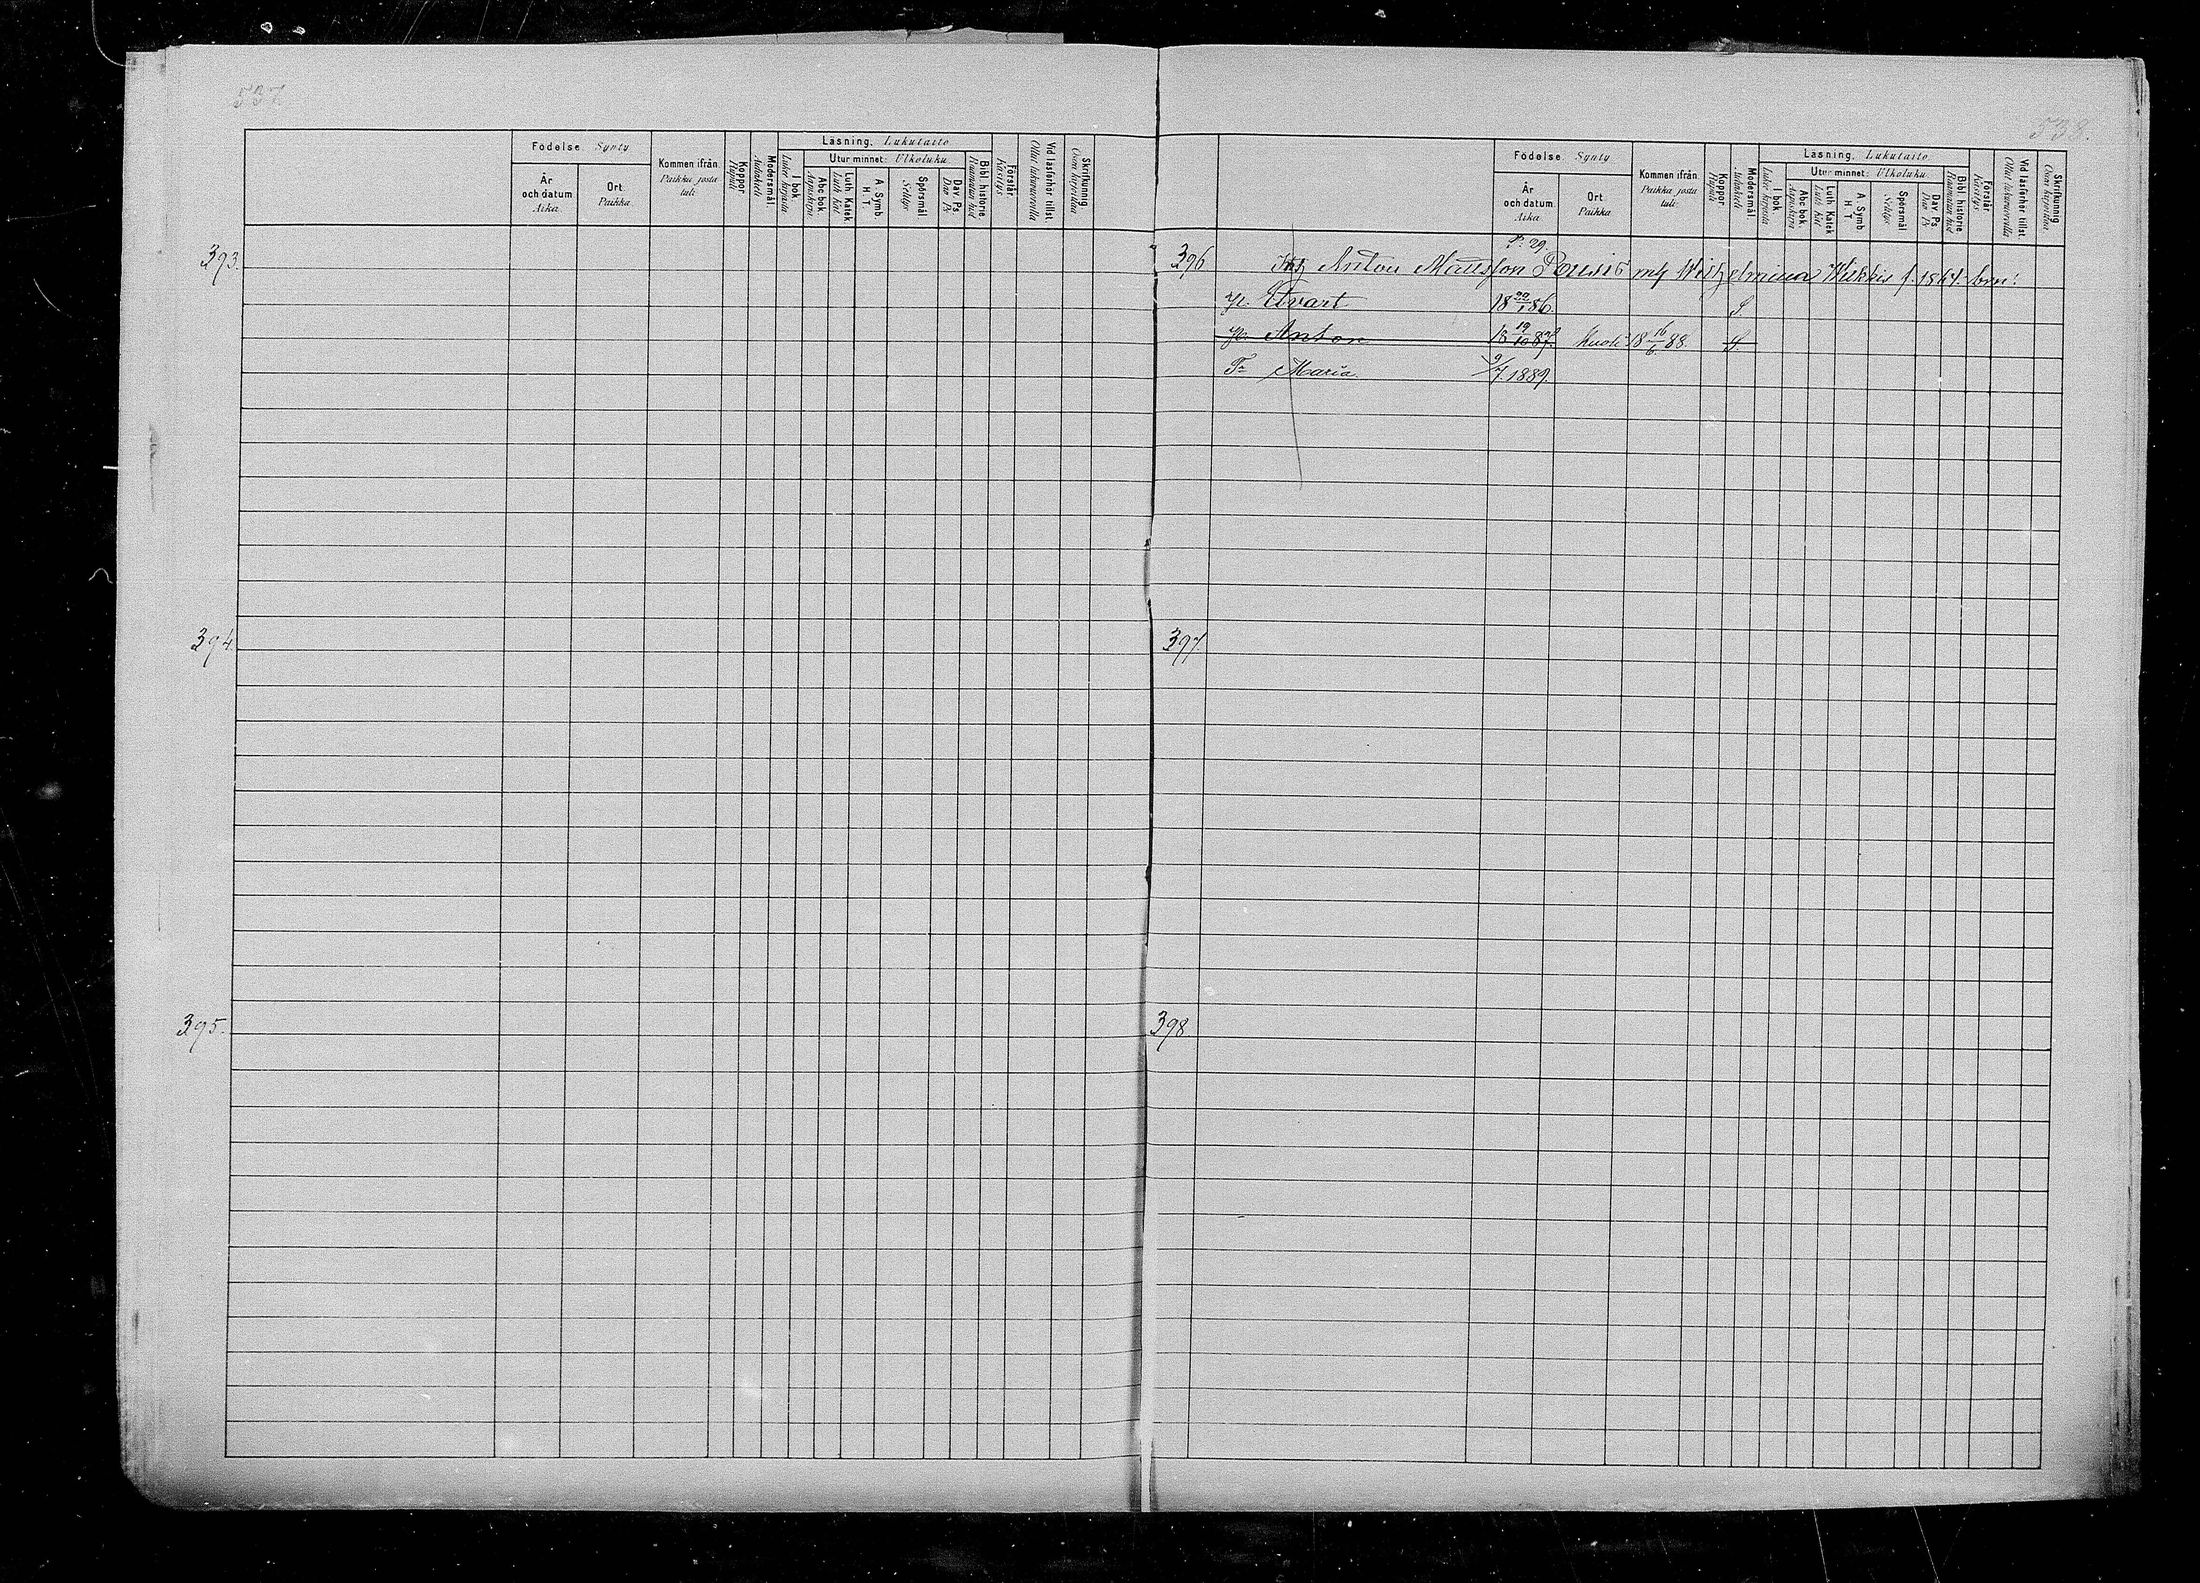 537
Födelse. Synty
Kommen ifrån
Paikka josta tuli.
Koppor. Rupuli
Modersmål. Äidinkieli
Läsning. Lukutaito
Utur minnet: Ulkoluku
I bok. Lukee kirjasta
Abc bok. Aapiskirja
Luth Katek Luth Kat
A. Symb. H T
Spörsmål Selitys
Dav. Ps Dav Ps
Bibl. historie Raamatun hist
Förstår. Käsitys
Vid läsförhör tillst. Ollut lukuvuorolla
Skrifkunnig. Osaa kirjoittaa
År och datum. Aika.
Ort. Paikka.
393.
394.
395.
538.
Födelse. Synty
Kommen ifrån
Paikka josta tuli.
Koppor. Rupuli
Modersmål. Äidinkieli
Läsning. Lukutaito
Utur minnet: Ulkoluku
I bok. Lukee kirjasta
Abc bok. Aapiskirja
Luth Katek Luth Kat
A. Symb. H T
Spörsmål Selitys
Dav. Ps Dav Ps
Bibl. historie Raamatun hist
Förstår. Käsitys
Vid läsförhör tillst. Ollut lukuvuorolla
Skrifkunnig. Osaa kirjoittaa
År och datum. Aika.
Ort. Paikka.
S. 29.
396 Anton Mattsson Pousis Wilhelmina Wikkis f. 1864.
Edvart 18 22/1 86.
Anton 18 19/10 87. kuoli 18 16/6 88.
Maria. 9/7. 1889.
397.
398